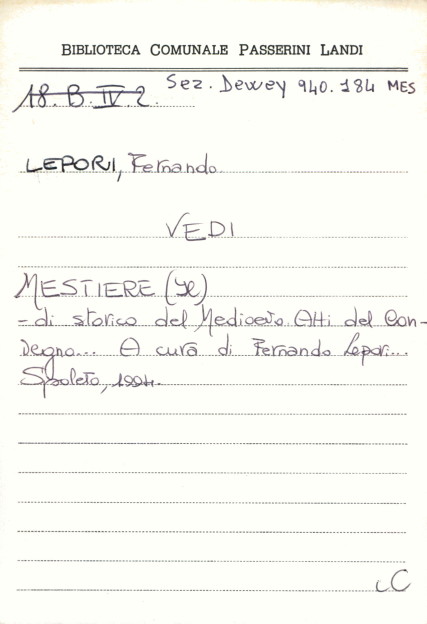 BIBLIOTECA COMUNALE PASSERINI LANDI
18. B. IV. 2. Sez. Dewey 940.184 MES
LEPORI, Fernando
VEDI
MESTIERE (Il)
- di storico del Medioevo. Atti del Con-
vegno... A cura di Fernando Lepori...
Spoleto, 1994.